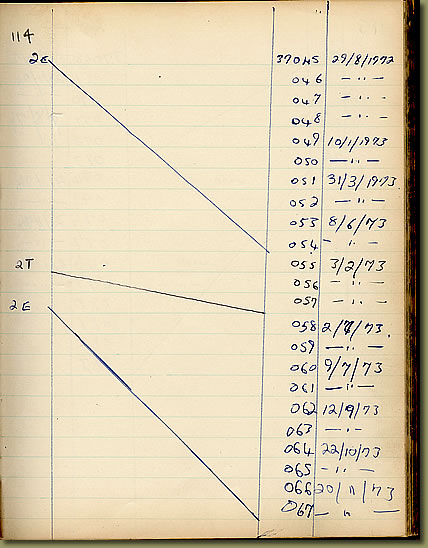 114
2E 37045 29/8/1972
046 — " —
047 — " —
048 — " —
049 10/1/1973
050 — " —
051 31/3/1973
052 — " —
053 8/6/73
054 — " —
2T 055 3/2/73
056 — " —
057 — " —
2E 058 2/7/73
059 — " —
060 9/7/73
061 — " —
062 12/9/73
063 — " —
064 22/10/73
065 — " —
066 20/11/73
067 — " —